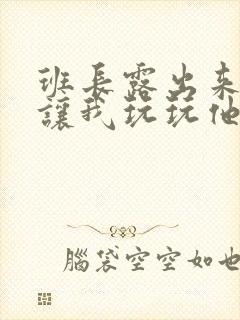 班長露出來
讓我玩玩他
腦袋空空如也